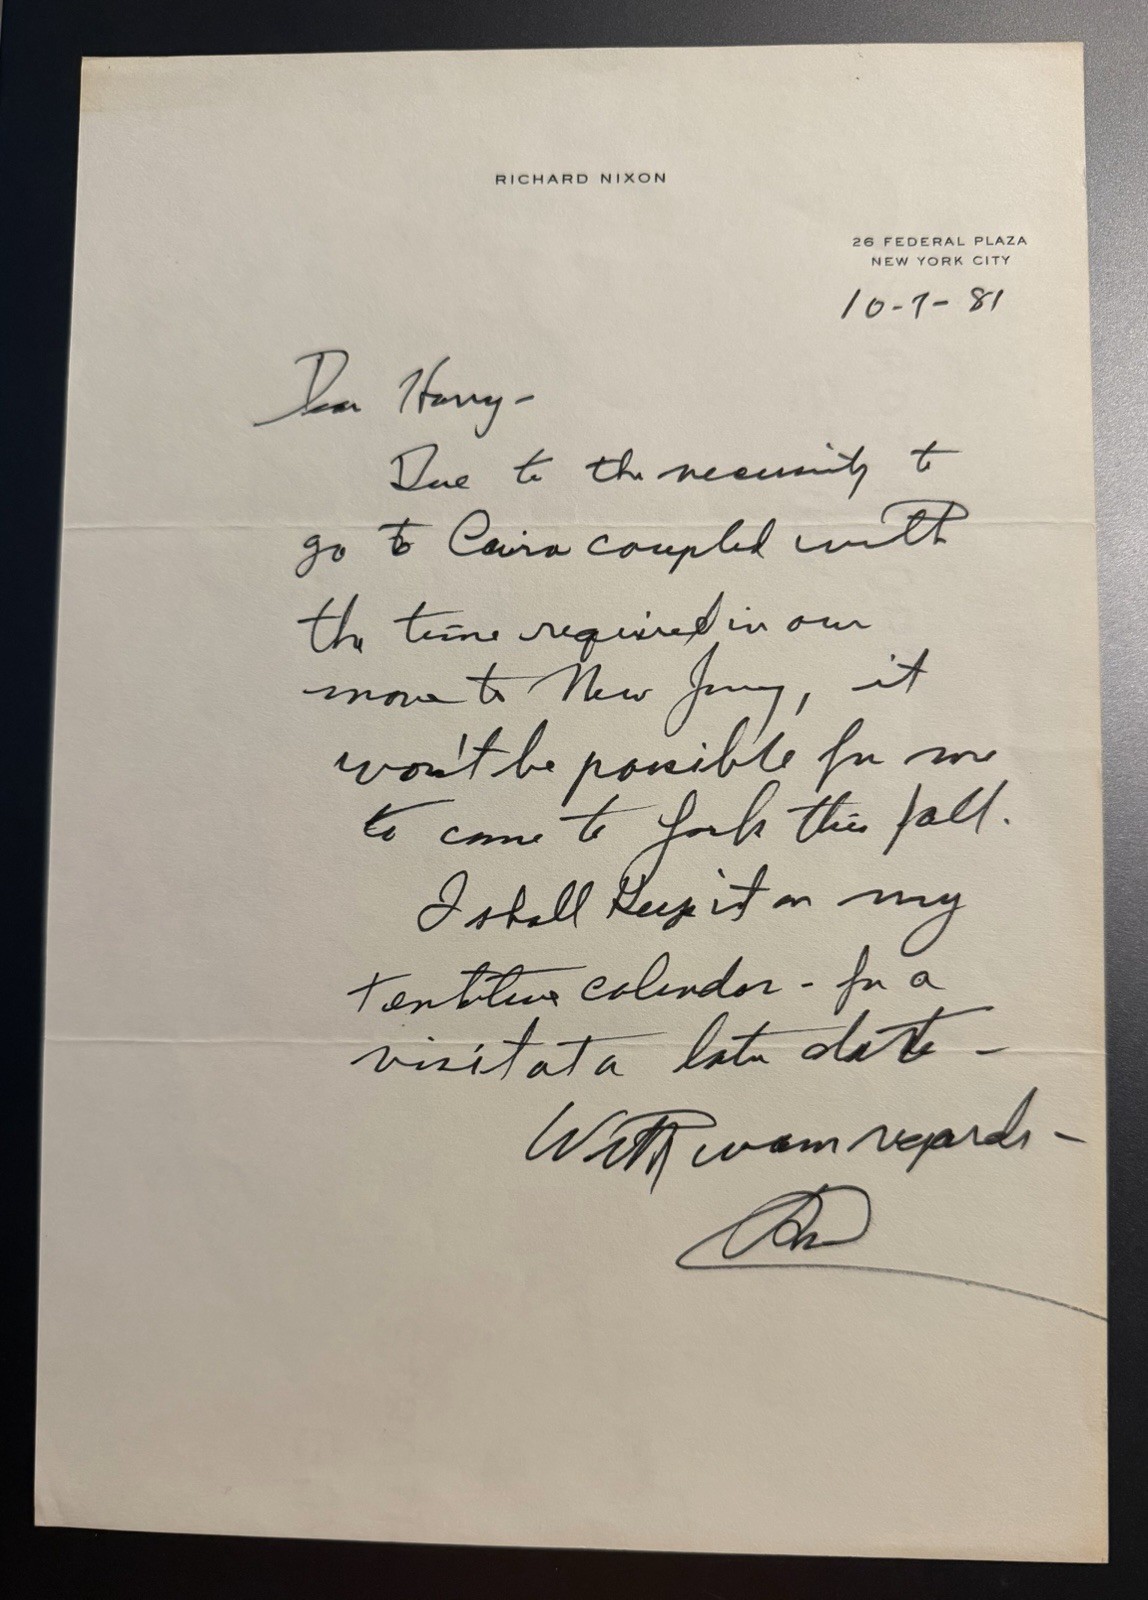 RICHARD NIXON
26 FEDERAL PLAZA
NEW YORK CITY
10-7-81
Dear Harry-
Due to the necessity to
go to Cairo coupled with
the time required in our
move to New Jersey, it
won't be possible for me
to come to York this fall.
I shall keep it on my
tentitive calendar - for a
visit at a later date -
With warm regards -
RN